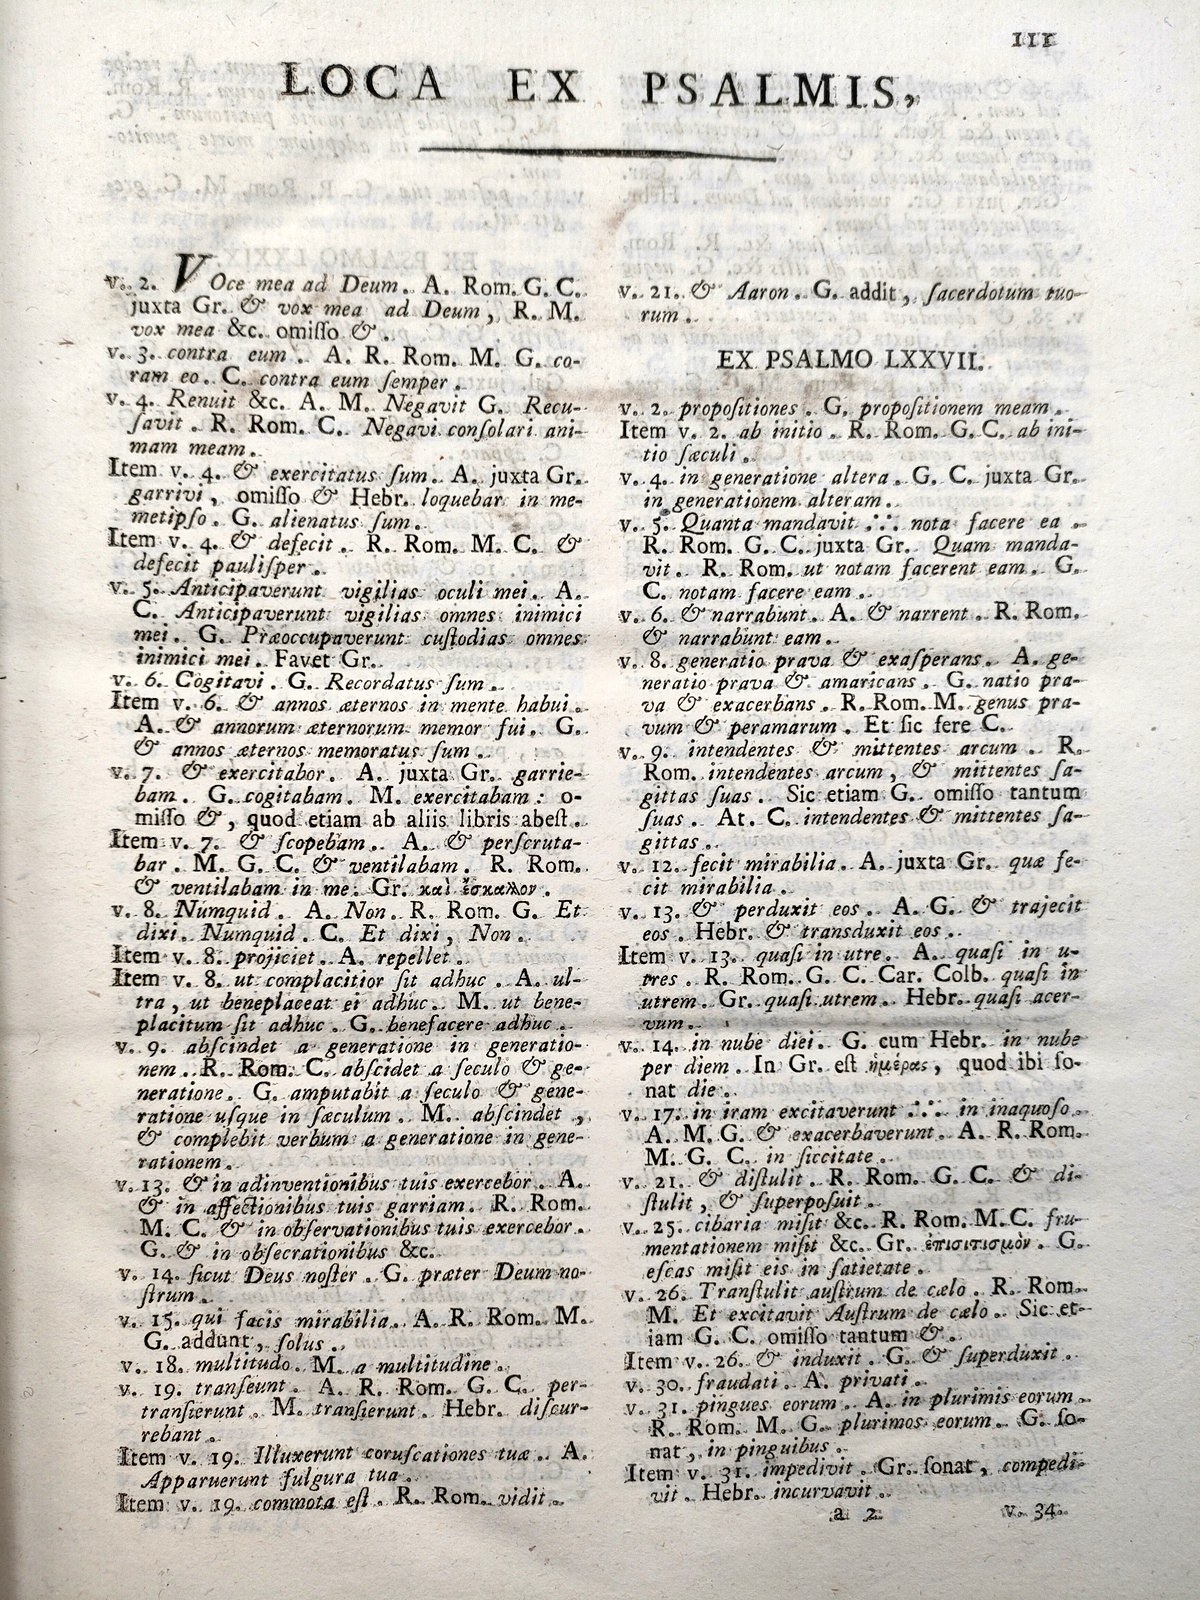 III
LOCA EX PSALMIS,
v. 2. VOce mea ad Deum. A. Rom. G. C.
juxta Gr. & vox mea ad Deum, R. M.
vox mea &c. omiſſo &.
v. 3. contra eum. A. R. Rom. M. G. co-
ram eo. C. contra eum ſemper.
v. 4. Renuit &c. A. M. Negavit G. Recu-
ſavit. R. Rom. C. Negavi conſolari ani-
mam meam.
Item v. 4. & exercitatus ſum. A. juxta Gr.
garrivi, omiſſo & Hebr. loquebar in me-
metipſo. G. alienatus ſum.
Item v. 4. & defecit. R. Rom. M. C. &
defecit pauliſper.
v. 5. Anticipaverunt vigilias oculi mei. A.
C. Anticipaverunt vigilias omnes inimici
mei. G. Præoccupaverunt cuſtodias omnes
inimici mei. Favet Gr.
v. 6. Cogitavi. G. Recordatus ſum.
Item v. 6. & annos æternos in mente habui.
A. & annorum æternorum memor fui. G.
& annos æternos memoratus ſum.
v. 7. & exercitabor. A. juxta Gr. garrie-
bam. G. cogitabam. M. exercitabam: o-
miſſo &, quod etiam ab aliis libris abeſt.
Item v. 7. & ſcopebam. A. & perſcruta-
bar. M. G. C. & ventilabam. R. Rom.
& ventilabam in me. Gr. καὶ ἔσκαλλον.
v. 8. Numquid. A. Non. R. Rom. G. Et
dixi. Numquid. C. Et dixi, Non.
Item v. 8. projiciet. A. repellet.
Item v. 8. ut complacitior ſit adhuc. A. ul-
tra, ut beneplaceat ei adhuc. M. ut bene-
placitum ſit adhuc. G. benefacere adhuc.
v. 9. abſcindet a generatione in generatio-
nem. R. Rom. C. abſcidet a ſeculo & ge-
neratione. G. amputabit a ſeculo & gene-
ratione uſque in ſæculum. M. abſcindet,
& complebit verbum a generatione in gene-
rationem.
v. 13. & in adinventionibus tuis exercebor. A.
& in affectionibus tuis garriam. R. Rom.
M. C. & in obſervationibus tuis exercebor.
G. & in obſecrationibus &c.
v. 14. ſicut Deus noſter. G. præter Deum no-
ſtrum.
v. 15. qui facis mirabilia. A. R. Rom. M.
G. addunt, ſolus.
v. 18. multitudo. M. a multitudine.
v. 19. tranſeunt. A. R. Rom. G. C. per-
tranſierunt. M. tranſierunt. Hebr. diſcur-
rebant.
Item v. 19. Illuxerunt coruſcationes tuæ. A.
Apparuerunt fulgura tua.
Item v. 19. commota eſt. R. Rom. vidit.
v. 21. & Aaron. G. addit, ſacerdotum tuo-
rum.
EX PSALMO LXXVII.
v. 2. propoſitiones. G. propoſitionem meam.
Item v. 2. ab initio. R. Rom. G. C. ab ini-
tio ſæculi.
v. 4. in generatione altera. G. C. juxta Gr.
in generationem alteram.
v. 5. Quanta mandavit ∴ nota facere ea.
R. Rom. G. C. juxta Gr. Quam manda-
vit. R. Rom. ut notam facerent eam. G.
C. notam facere eam.
v. 6. & narrabunt. A. & narrent. R. Rom.
& narrabunt eam.
v. 8. generatio prava & exaſperans. A. ge-
neratio prava & amaricans. G. natio pra-
va & exacerbans. R. Rom. M. genus pra-
vum & peramarum. Et ſic fere C.
v. 9. intendentes & mittentes arcum. R.
Rom. intendentes arcum, & mittentes ſa-
gittas ſuas. Sic etiam G. omiſſo tantum
ſuas. At. C. intendentes & mittentes ſa-
gittas.
v. 12. fecit mirabilia. A. juxta Gr. quæ fe-
cit mirabilia.
v. 13. & perduxit eos. A. G. & trajecit
eos. Hebr. & transduxit eos.
Item v. 13. quaſi in utre. A. quaſi in u-
tres. R. Rom. G. C. Car. Colb. quaſi in
utrem. Gr. quaſi utrem. Hebr. quaſi acer-
vum.
v. 14. in nube diei. G. cum Hebr. in nube
per diem. In Gr. eſt ἡμέρας, quod ibi ſo-
nat die.
v. 17. in iram excitaverunt ∴ in inaquoſo.
A. M. G. & exacerbaverunt. A. R. Rom.
M. G. C. in ſiccitate.
v. 21. & diſtulit. R. Rom. G. C. & di-
ſtulit, & ſuperpoſuit.
v. 25. cibaria miſit &c. R. Rom. M. C. fru-
mentationem miſit &c. Gr. ἐπισιτισμὸν. G.
eſcas miſit eis in ſatietate.
v. 26. Tranſtulit auſtrum de cælo. R. Rom.
M. Et excitavit Auſtrum de cælo. Sic et-
iam G. C. omiſſo tantum &.
Item v. 26. & induxit. G. & ſuperduxit.
v. 30. fraudati. A. privati.
v. 31. pingues eorum. A. in plurimis eorum.
R. Rom. M. G. plurimos eorum. G. ſo-
nat, in pinguibus.
Item v. 31. impedivit. Gr. ſonat, compedi-
vit. Hebr. incurvavit.
a 2 v. 34.